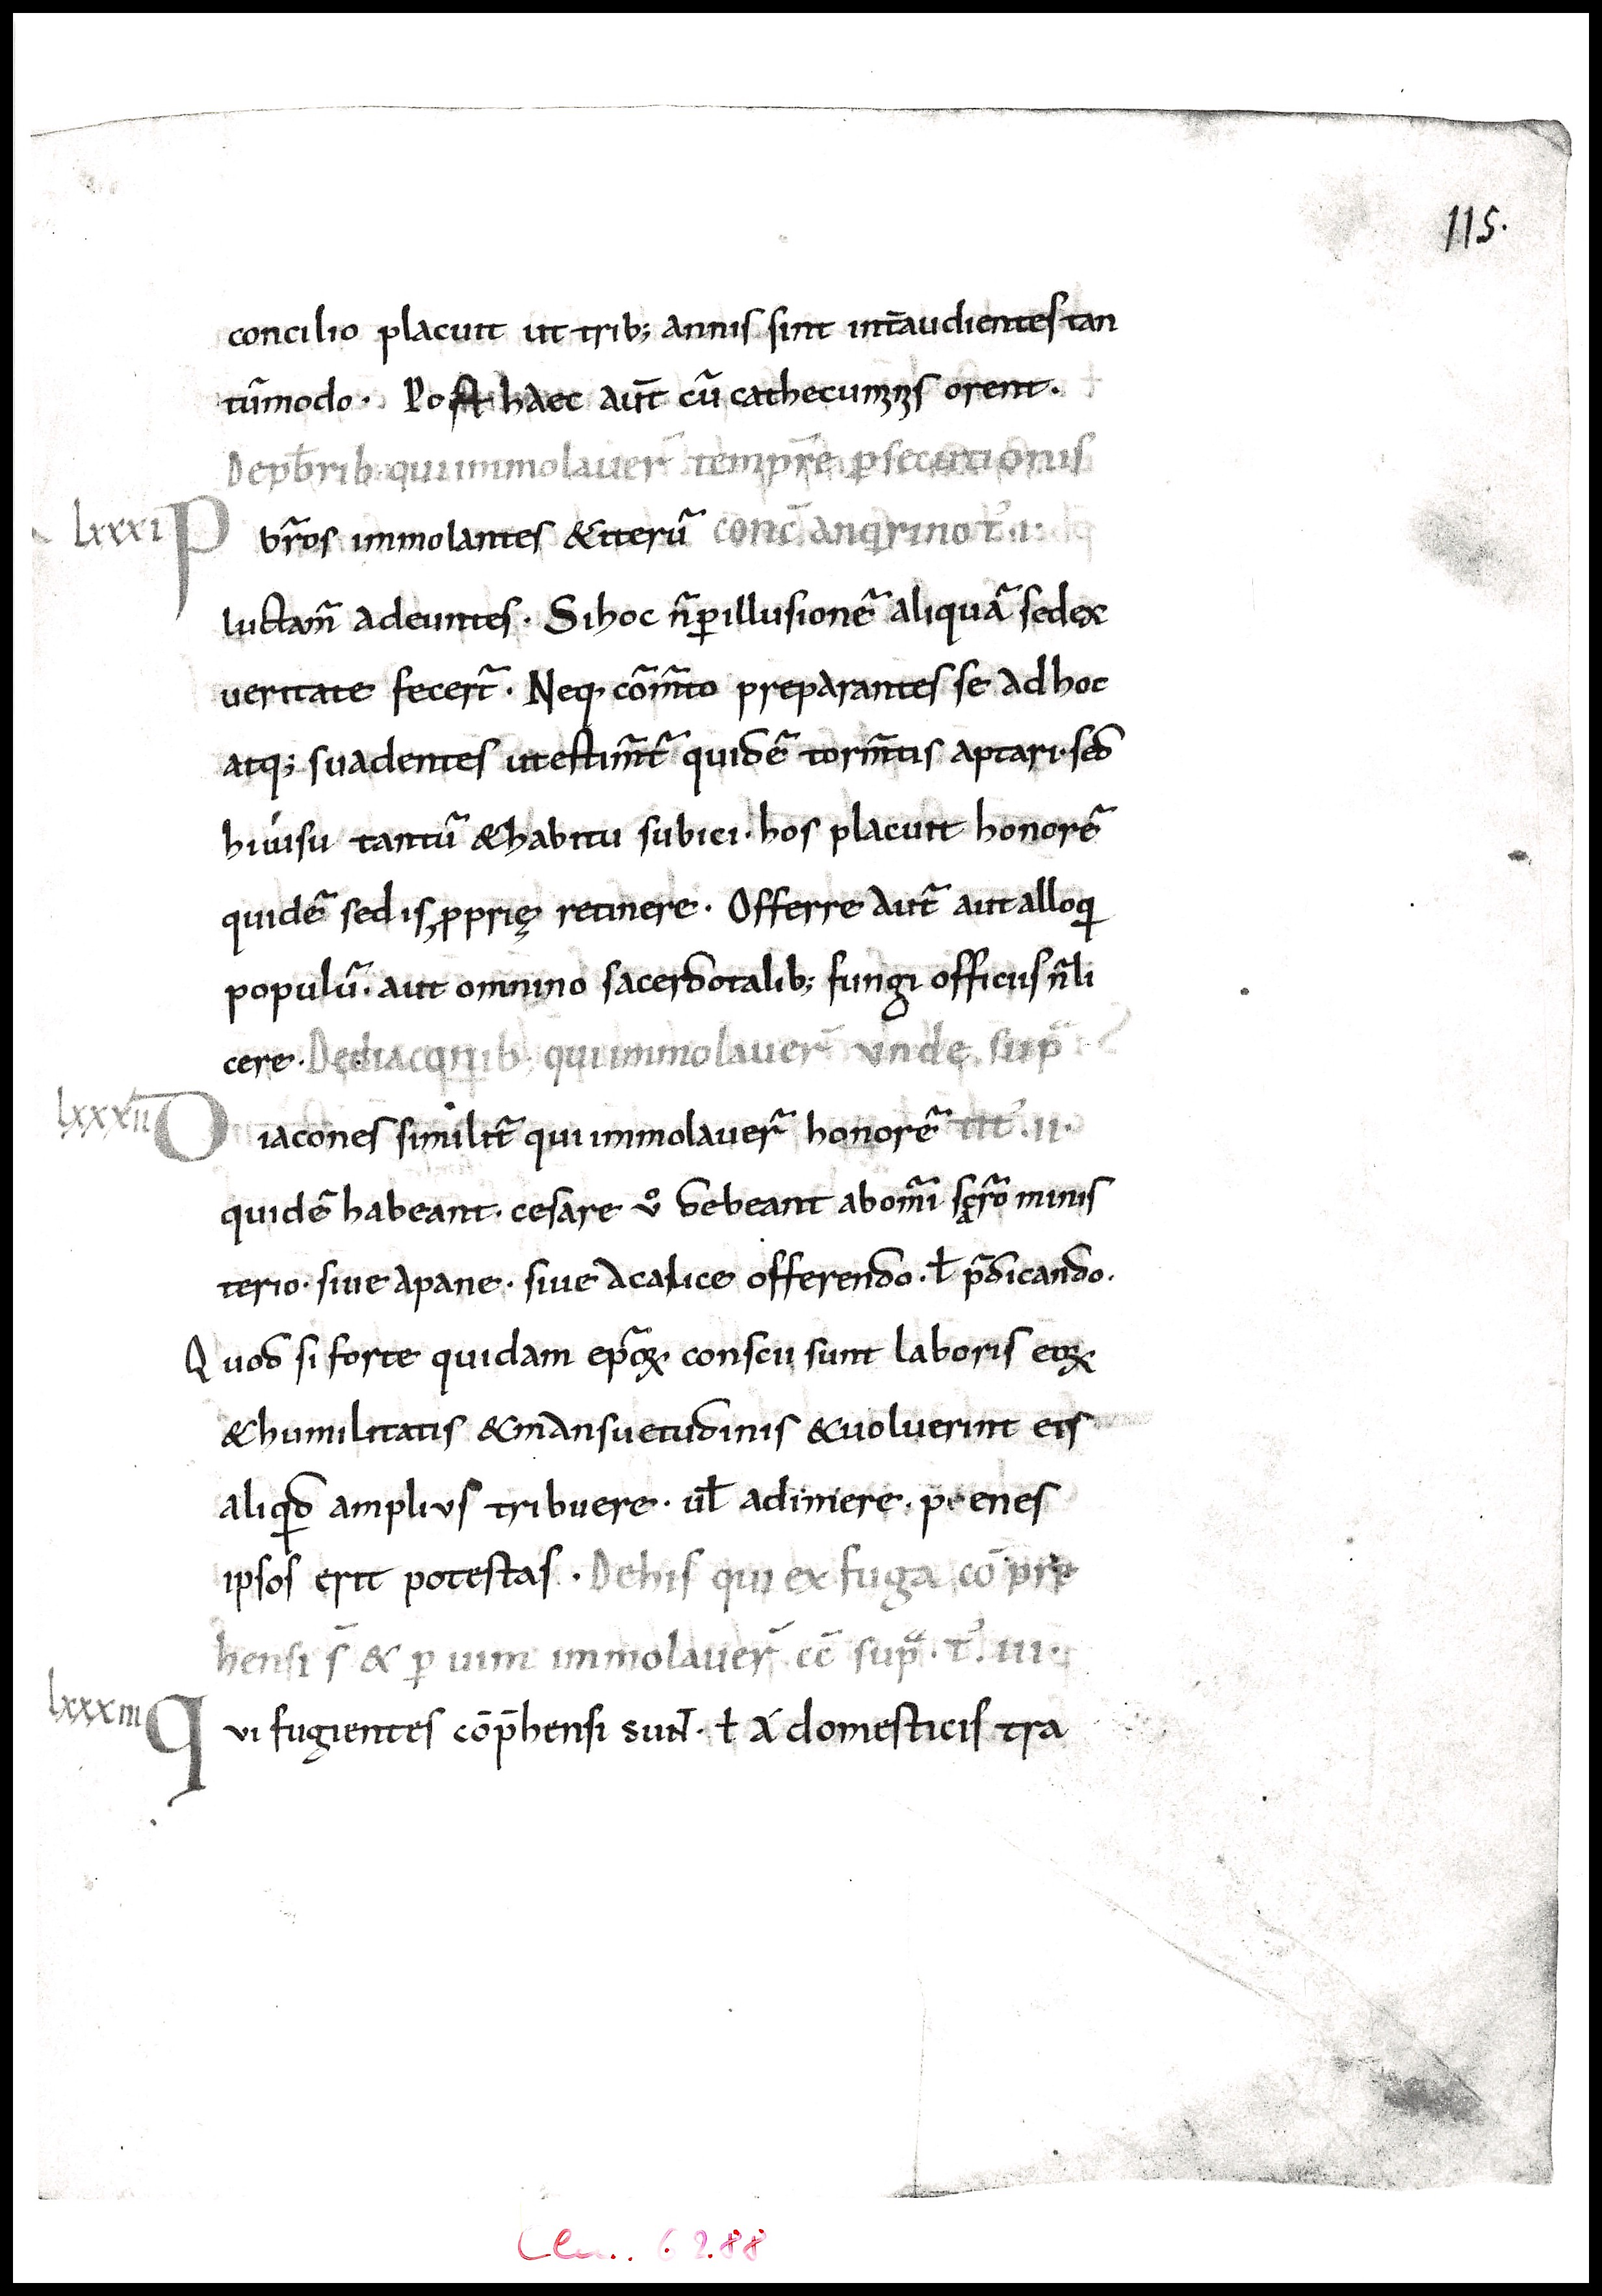 115.
concilio placuit ut trib; annis sint int̄ audientes tan
tū modo. Post haec aut̄ cū cathecuminis orent.
De pb̄rib. qui immolauer̄ tempr̄e p̱secutionis
lxxxi P br̄os immolantes & iterū conc̄ anqirino t̄. i.
luctam̄ adeuntes. Si hoc n̄ p̱ illusionē aliquā sed ex
ueritate fecer̄t. Neq. cōm̄to preparantes se ad hoc
atq; suadentes ut estim̄t̄ quidē torm̄tis aptari. sed
hi uisu tantū & habitu subici. hos placuit honorē
quidē sedis p̱prię retinere. Offerre aut̄ aut alloqi
populū. aut omnino sacerdotalib; fungi officiis n̄ li
cere. De diaconib. qui immolauer̄ unde sup̄
lxxxii D iacones similit̄ qui immolauer̄ honorē tit̄. ii.
quidē habeant. cesare uͦ debeant ab om̄i sc̄ro minis
terio. siue a pane. siue a calice offerendo. ł p̄dicando.
Quod si forte quidam ep̄coꝝ. conscii sunt laboris eoꝝ.
& humilitatis & mansuetudinis & uoluerint eis
aliqid amplius tribuere. uł adimere. penes
ipsos erit potestas. De his qui ex fuga cō pre
hensi s̄ & p̱ uim immolauer̄ cc̄ sup̄. t̄. iii.
lxxxiii q ui fugientes cōp̄hensi sunt. ł a domesticis tra
Clm. 6288